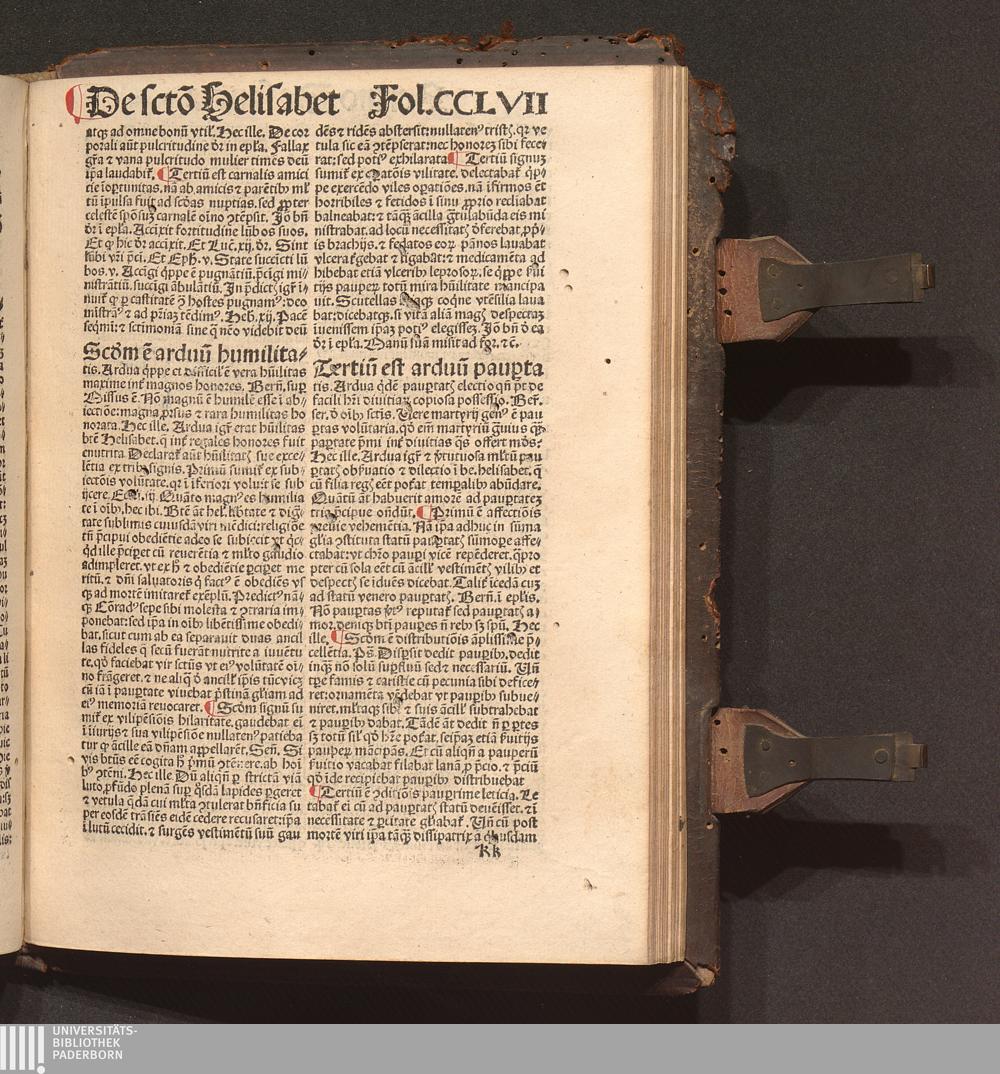 De sctō Helisabet Fol.CCLVII
atqꝫ ad omne bonū vtil. Hec ille. De cor
porali aūt pulcritudine dr̄ in epła. Fallax
gr̄a ⁊ vana pulcritudo mulier timēs deū
ip̄a laudabiť. Tertiū est carnalis amici
cie īoꝑtunitas. nā ab amicis ⁊ parētibꝰ ml̓
tū īpulsa fuit ad scd̄as nuptias. sed ꝓpter
celestē spōsuꝫ carnalē oīno ꝯtēpsit. Jō bn̄
dr̄ ī epła. Accīxit fortitudine lūbos suos.
Et ꝙ hic dr̄ accīxit. Et Luc̄. xij. dr̄. Sint
lūbi vr̄i p̄cī. Et Eph̄. v. State succīcti lū
bos. v. Accīgi q̄ppe ē pugnātiū. p̄cīgi mi⸗
nistrātiū. succīgi ābulātiū. Jn p̄dictꝭ igr̄ ī⸗
nuiť ꝙ ꝑ castitatē ꝯ̄ hostes pugnamꝰ: deo
mistramꝰ ⁊ ad pr̄iaꝫ tēdimꝰ. Heb. xij. Pacē
seqmī: ⁊ sctimoniā sine q̄ nēo videbit deū
Scd̄m ē arduū humilita⸗
tis. Ardua q̄ppe et difficiľ ē vera hūilitas
maxime inť magnos honores. Bern̄. suꝑ
Missus ē. Nō magnū ē humilē esse ī ab⸗
iectiōe: magna ꝓrsus ⁊ rara humilitas ho
norata. Hec ille. Ardua igr̄ erat hūilitas
btē Helisabet. q̄ inť regales honores fuit
enutrita. Declarať aūt hūilitatꝭ sue exce⸗
lētia ex tribꝰ signis. Primū sumiť ex sub⸗
iectōis volūtate. qꝛ ī īferiori voluit se sub
ijcere. Eccī. iij. Quāto magnꝰ es humilia
te ī oībꝰ. hec ibi. Btē āt hel. libtate ⁊ dig⸗
tate sublimis cuiusdā viri mēdici: religiōe
tn̄ p̄cipui obediētie adeo se subiecit vt qͥc⸗
qͥd ille p̄ciꝑet cū reuerētia ⁊ ml̓to gaudio
adimpleret. vt ex hꝭ ⁊ obediētie ꝑciꝑet me
ritū. ⁊ dn̄i saluatoris q̄ factꝰ ē obediēs vs
qꝫ ad mortē imitareť exēplū. Predictꝰ nā⸗
qꝫ Cōradꝰ sepe sibi molesta ⁊ ꝯtraria im⸗
ponebat: sed ip̄a in oībꝰ libētissime obedi⸗
bat. sicut cum ab ea separauit duas ancil
las fideles q̄ secū fuerāt nutrite a iuuētu
te. qd̄ faciebat vir sctūs vt eiꝰ volūtatē oī⸗
no frāgeret. ⁊ ne aliq̄ d̓ ancilľ ip̄is tūc vicꝫ
cū iā ī pauꝑtate viuebat p̄stinā gl̓iam ad
eiꝰ memoriā reuocaret. Scd̄m signū su
miť ex vilipēsiōis hilaritate. gaudebat eī
ī iīurijs ⁊ sua vilipēsiōe nullatenꝰ patieba
tur ꝙ ācille eā dn̄am appellarēt. Sen̄. Si
vis btūs eē cogita hꝭ p̄mū ꝯtēnere. ab hoī
bꝰ ꝯtēni. Hec ille Dū aliqn̄ ꝑ strictā viā
luto ꝓfūdo plenā suꝑ qͥsdā lapides ꝑgeret
⁊ vetula q̄dā cui ml̓ta ꝯtulerat bn̄ficia su
per eosdē trāsiēs eidē cedere recusaret: ip̄a
ī lutū cecidit. ⁊ surgēs vestimētū suū gau
dēs ⁊ ridēs abstersit: nullatenꝰ tristꝭ. qꝛ ve
tula sic eā ꝯtēpserat: nec honorez sibi fece⸗
rat: sed potiꝰ exhilarata. Tertiū signuꝫ
sumiť ex ꝯatōis vilitate. delectabať q̄p⸗
pe exercēdo viles oꝑatiōes. nā īfirmos ēt
horribiles ⁊ fetidos ī sinu ꝓprio recliabat
balneabat: ⁊ tāqꝫ ācilla gr̄tulabūda eis mi
nistrabat. ad locū necessitatꝭ d̓ferebat. ꝓp̄i⸗
is brachijs. ⁊ fedatos eoꝝ pānos lauabat
vlcera tꝭgebat ⁊ ligabāt: ⁊ medicamēta ad
hibebat etiā vlceribꝰ leprosoꝝ. se q̄ppe ſui
tijs pauperꝝ totū mira hūilitate mācipa
uit. Scutellas quoqꝫ coqne vtēsilia laua
bat: dicebatqꝫ. si vitā aliā magꝭ despectaꝫ
īuenissem ip̄aꝫ potiꝰ elegissez. Jō bn̄ d̓ ea
dr̄ ī epła. Manū suā misit ad for. ⁊c.
Tertiū est arduū pauꝑta
tis. Ardua qͥdē pauꝑtatꝭ electio qn̄ pt̄ de
facili hr̄i diuitiaꝝ copiosa possessio. Ber̄.
ser. d̓ oībꝰ sctis. Vere martyrij genꝰ ē pau
ꝑtas volūtaria. qd̓ em̄ martyriū gͣuius qͣꝫ
pauꝑtate p̄mi inť diuitias qͣs offert mōs:
Hec ille. Ardua igr̄ ⁊ ꝟtutuosa ml̓tū pau
ꝑtatꝭ obẜuatio ⁊ dilectio ī be. helisabet. q̄
cū filia regꝭ eēt poťat tēꝑalibꝰ abūdare.
Quātū āt habuerit amorē ad pauꝑtatez
tria p̄cipue on̄dūt. Primū ē affectiōis
preuie vehemētia. Nā ip̄a adhuc in sūma
gl̓ia ꝯstituta statū pauꝑtatꝭ sūmoꝑe affe⸗
ctabat: vt chr̄o pauꝑi vicē repēderet. q̄pro
pter cū sola eēt cū ācilľ vestimētꝭ vilibꝰ et
despectꝭ se iduēs dicebat. Taliť īcedā cuꝫ
ad statū venero pauꝑtatꝭ. Bern̄. ī epl̓is.
Nō pauꝑtas ꝟtꝰ reputať sed pauꝑtatꝭ a⸗
mor. deniqꝫ bt̄i pauꝑes n̄ rebꝰ sꝫ spū. Hec
ille. Scd̄m ē distributiōis āplissime p̄⸗
cellētia. Ps̄. Disꝑsit dedit pauꝑibꝰ. dedit
inqꝫ nō solū suꝑfluū sed ⁊ necessariū. Vn̄
tꝑe famis ⁊ caristie cū pecunia sibi defice⸗
ret: ornamēta vēdebat vt pauꝑibꝰ subue⸗
niret. ml̓taqꝫ sibi ⁊ suis ācilľ subtrahebat
⁊ pauꝑibꝰ dabat. Tādē āt dedit n̄ ꝑ ꝑtes
sꝫ totū siľ qd̓ hr̄e poťat. seip̄aꝫ etiā ſuitijs
pauꝑeꝝ mācipās. Et cū aliqn̄ a pauperū
ſuitio vacabat filabat lanā ꝓ p̄cio. ⁊ p̄ciū
qd̓ īde recipiebat pauꝑibꝰ distribuebat
Tertiū ē ꝯditiōis pauꝑrime leticia. Le
tabať eī cū ad pauꝑtatꝭ statū deuēisset. ⁊ ī
necessitate ⁊ ꝑcitate gl̓iabať. Vn̄ cū post
mortē viri ip̄a tāqꝫ dissipatrix a qͥbusdam
Kk
UNIVERSITÄTS-
BIBLIOTHEK
PADERBORN